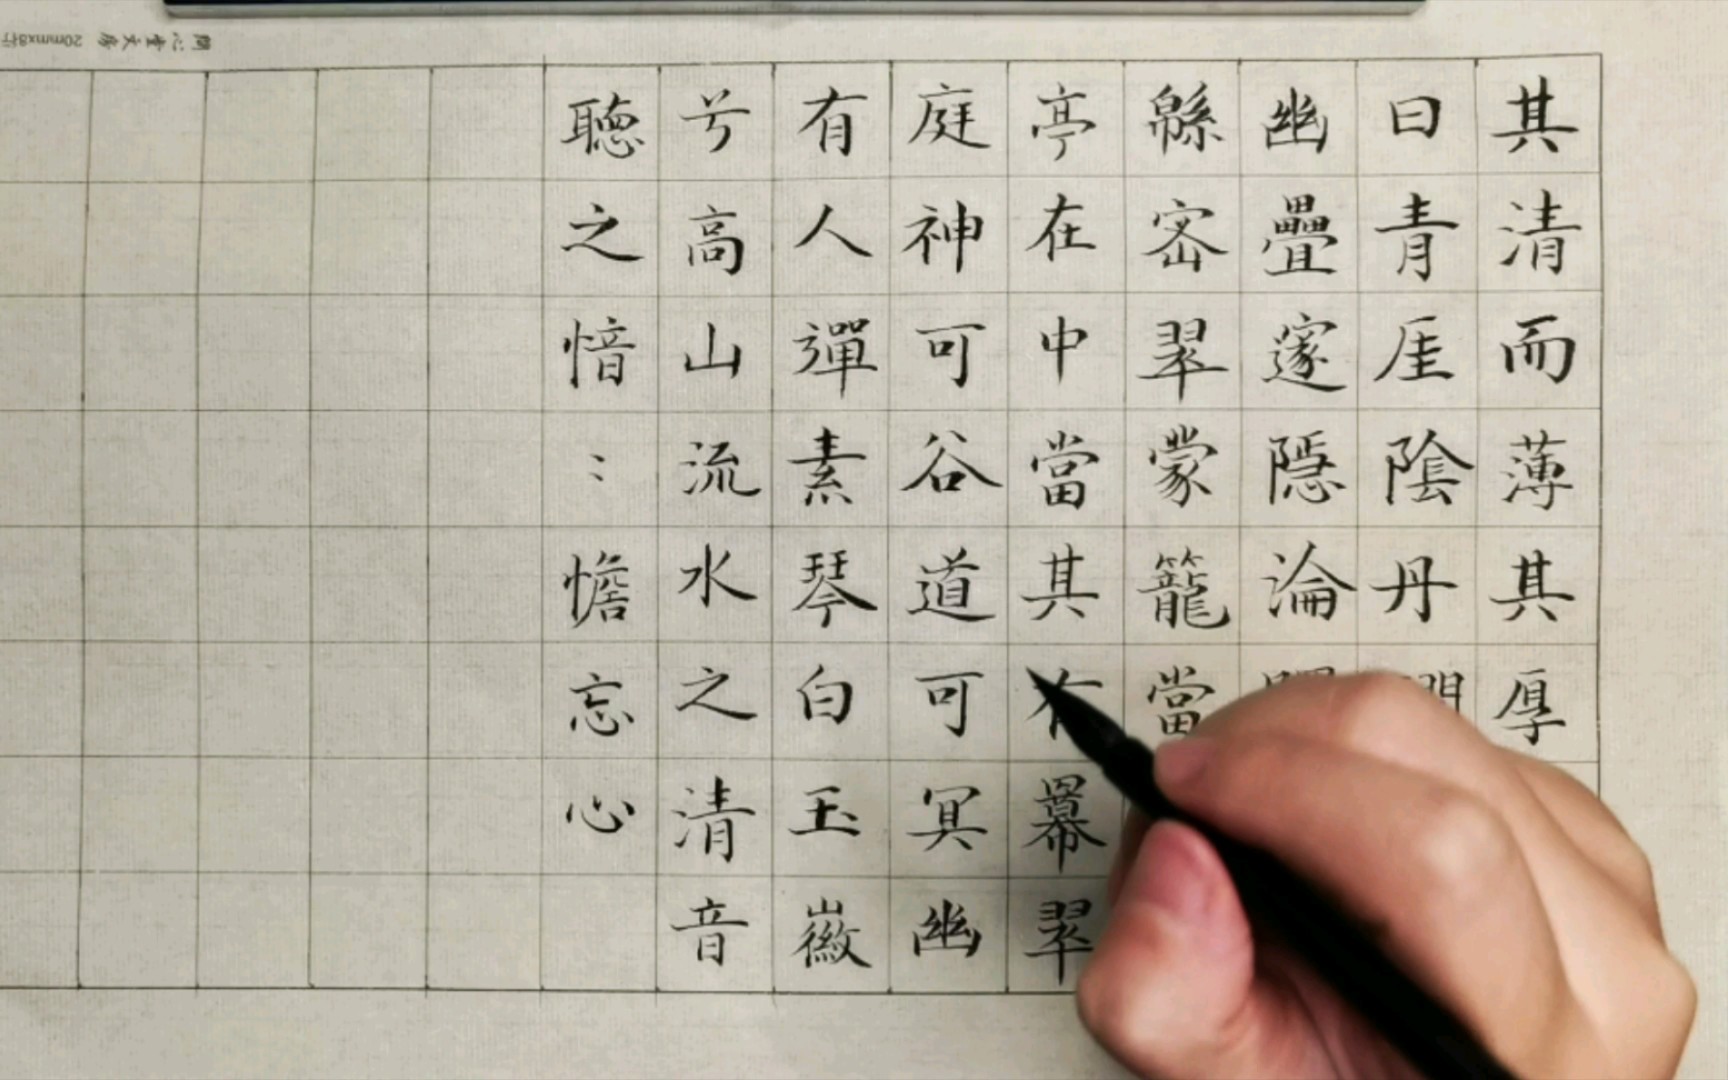 其清而薄其厚
曰青厓陰丹
幽疊邃隱淪
緜密翠蒙籠當
亭在中當其有幂翠
庭神可谷道可冥幽
有人彈素琴白玉徽
兮高山流水之清音
聽之愔〻憺忘心
開心堂文房 20mmx8行